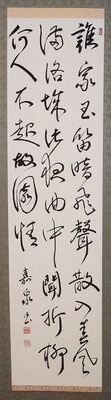 誰家玉笛暗飛聲散入春風
滿洛城此夜曲中聞折柳
何人不起故園情
嘉泉書